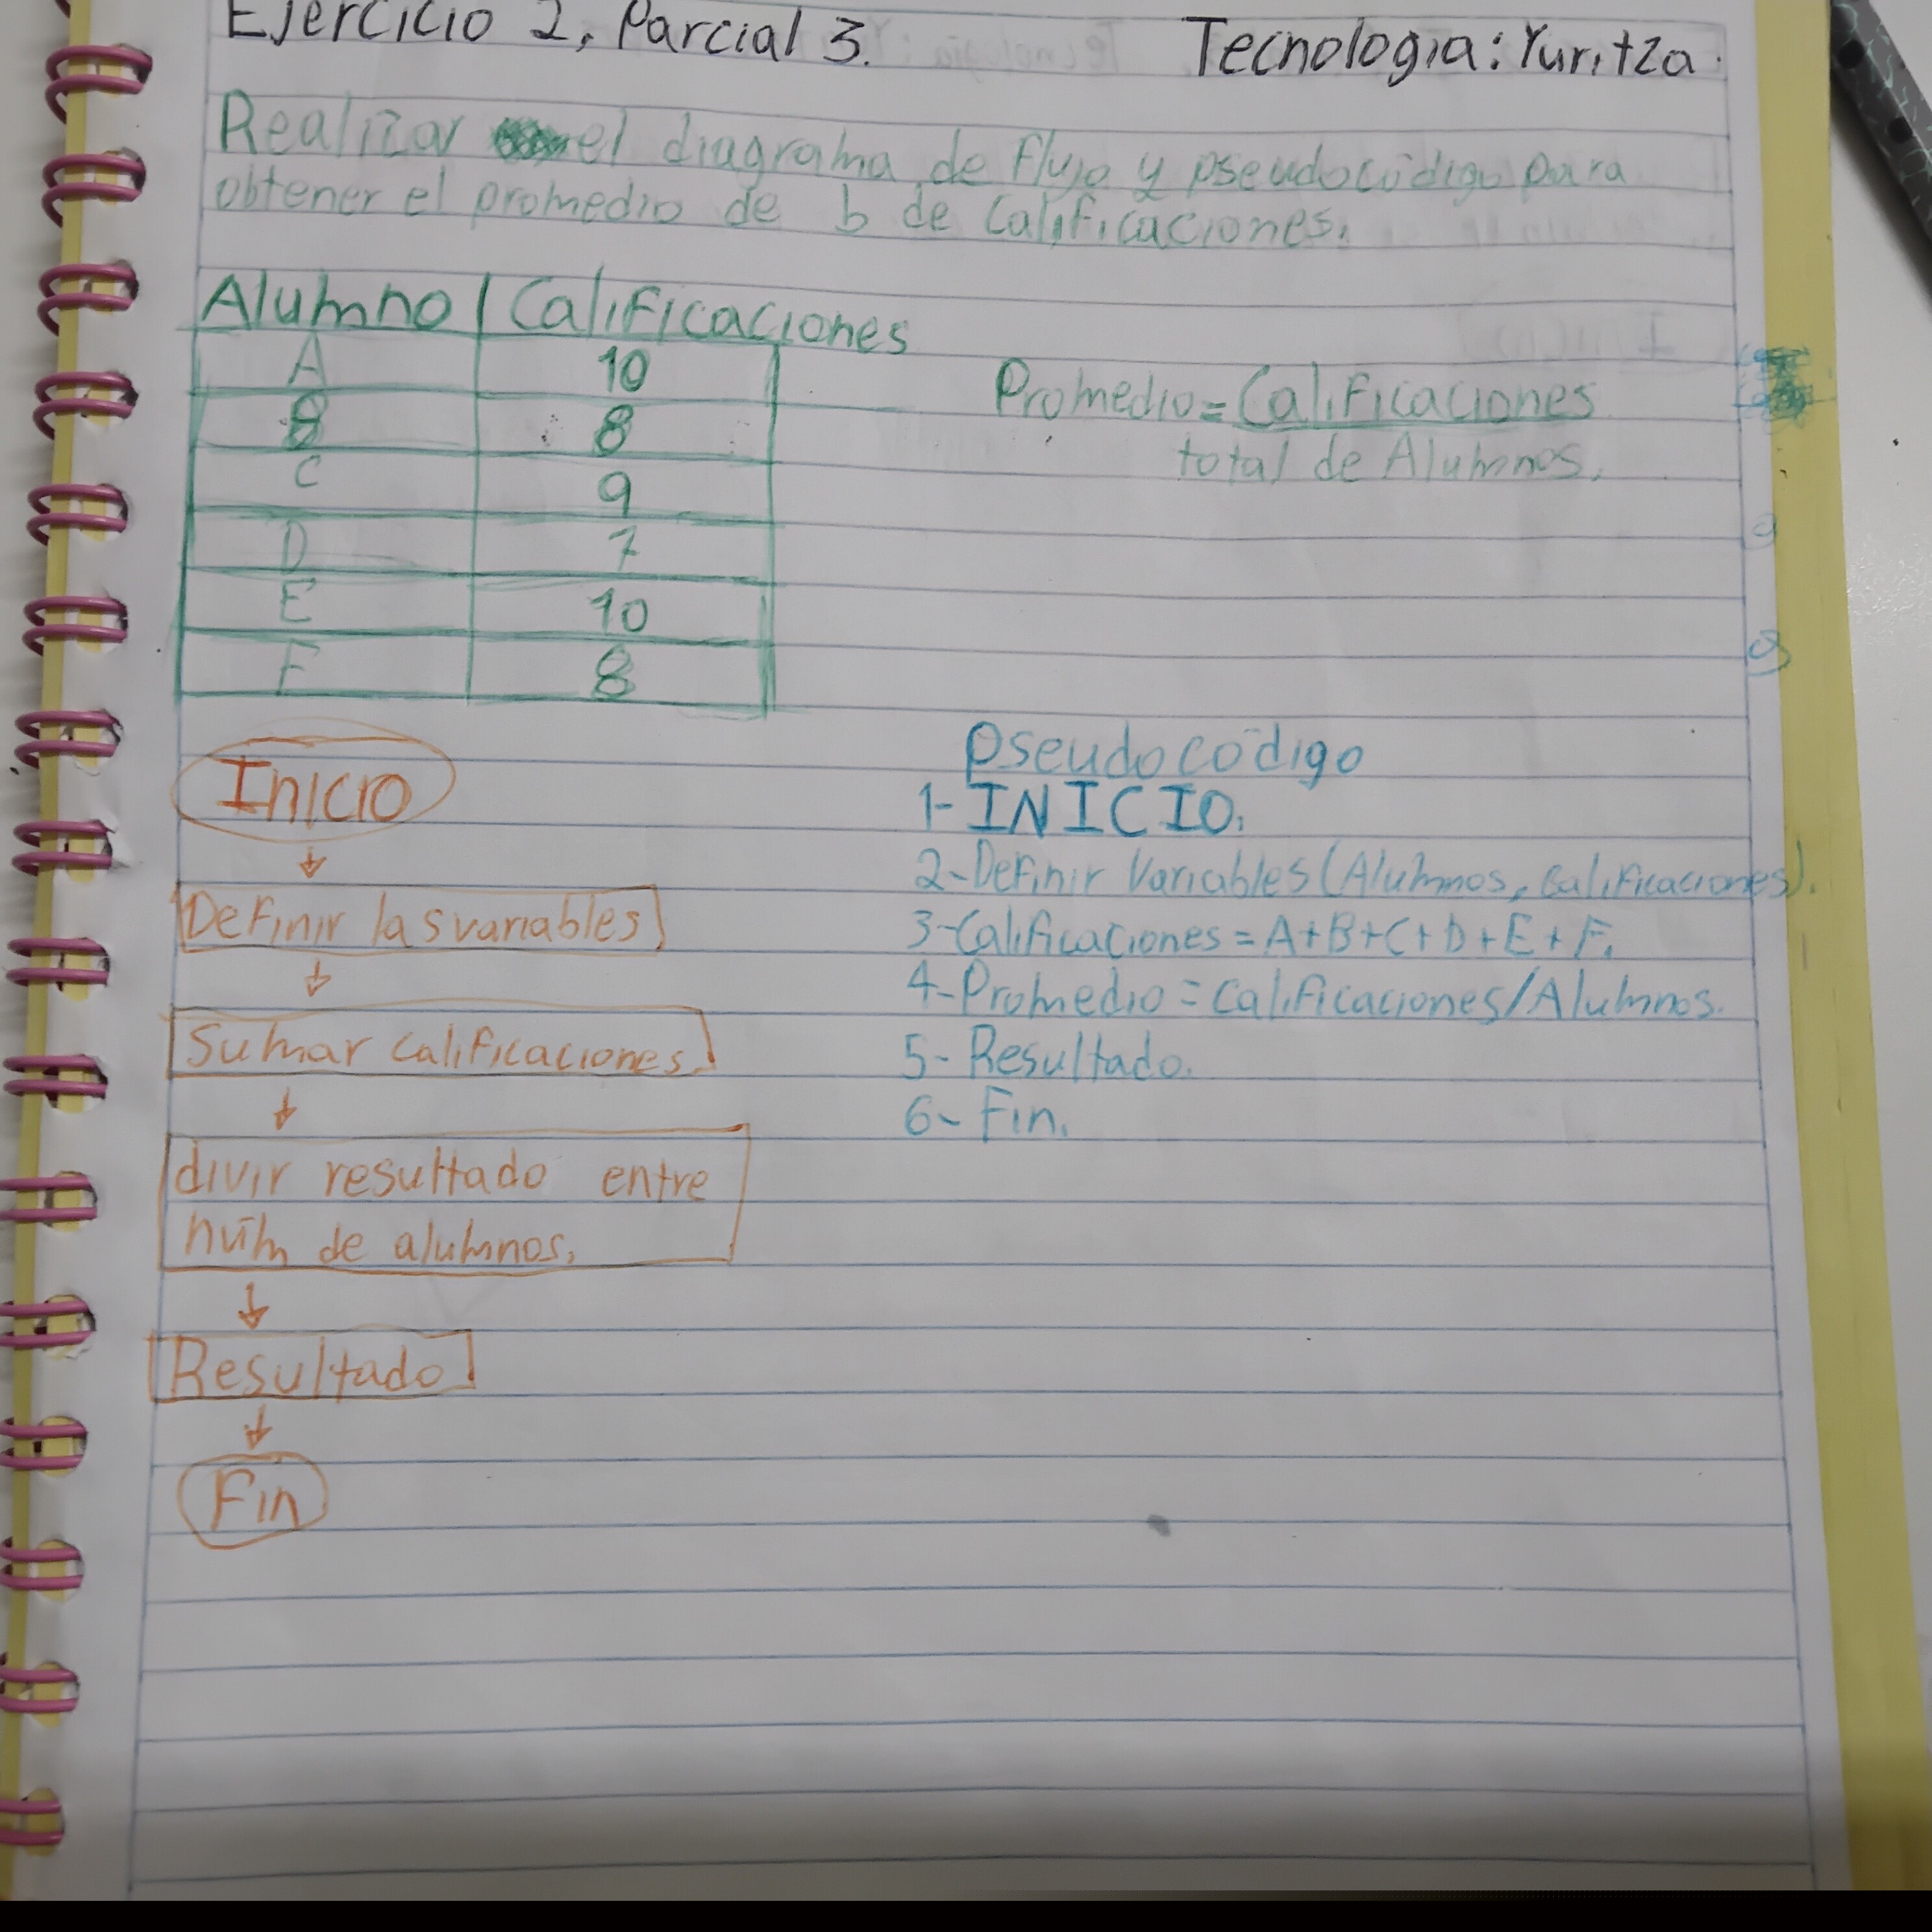 Ejercicio 2, Parcial 3. Tecnologia: Yuritza.
Realizar el diagrama de flujo y pseudocódigo para
obtener el promedio de b de Calificaciones.
Alumno | Calificaciones
A 10
B 8
C 9
D 7
E 10
F 8
Promedio = Calificaciones
total de Alumnos.
Inicio
Definir las variables
Sumar calificaciones.
divir resultado entre
núm de alumnos.
Resultado
Fin
Pseudocódigo
1- INICIO.
2- Definir Variables (Alumnos, Calificaciones).
3- Calificaciones = A+B+C+D+E+F.
4- Promedio = Calificaciones/Alumnos.
5- Resultado.
6- Fin.